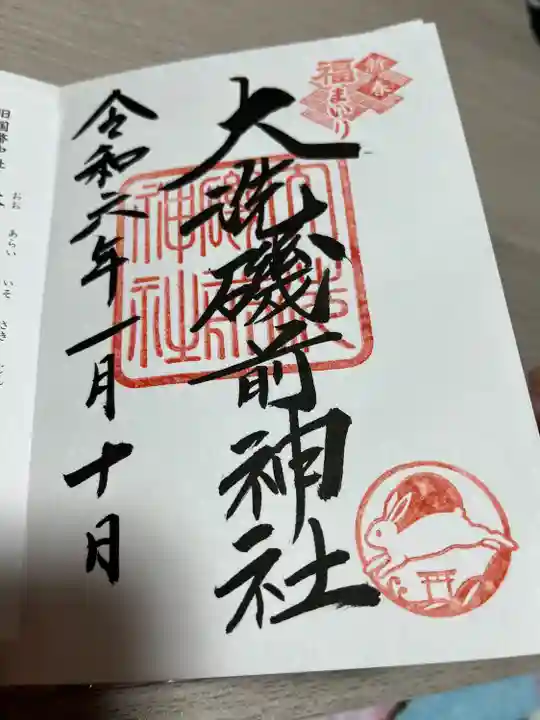 新春
福まいり
大洗磯前神社
令和六年一月十日
おお あらい いそ さき